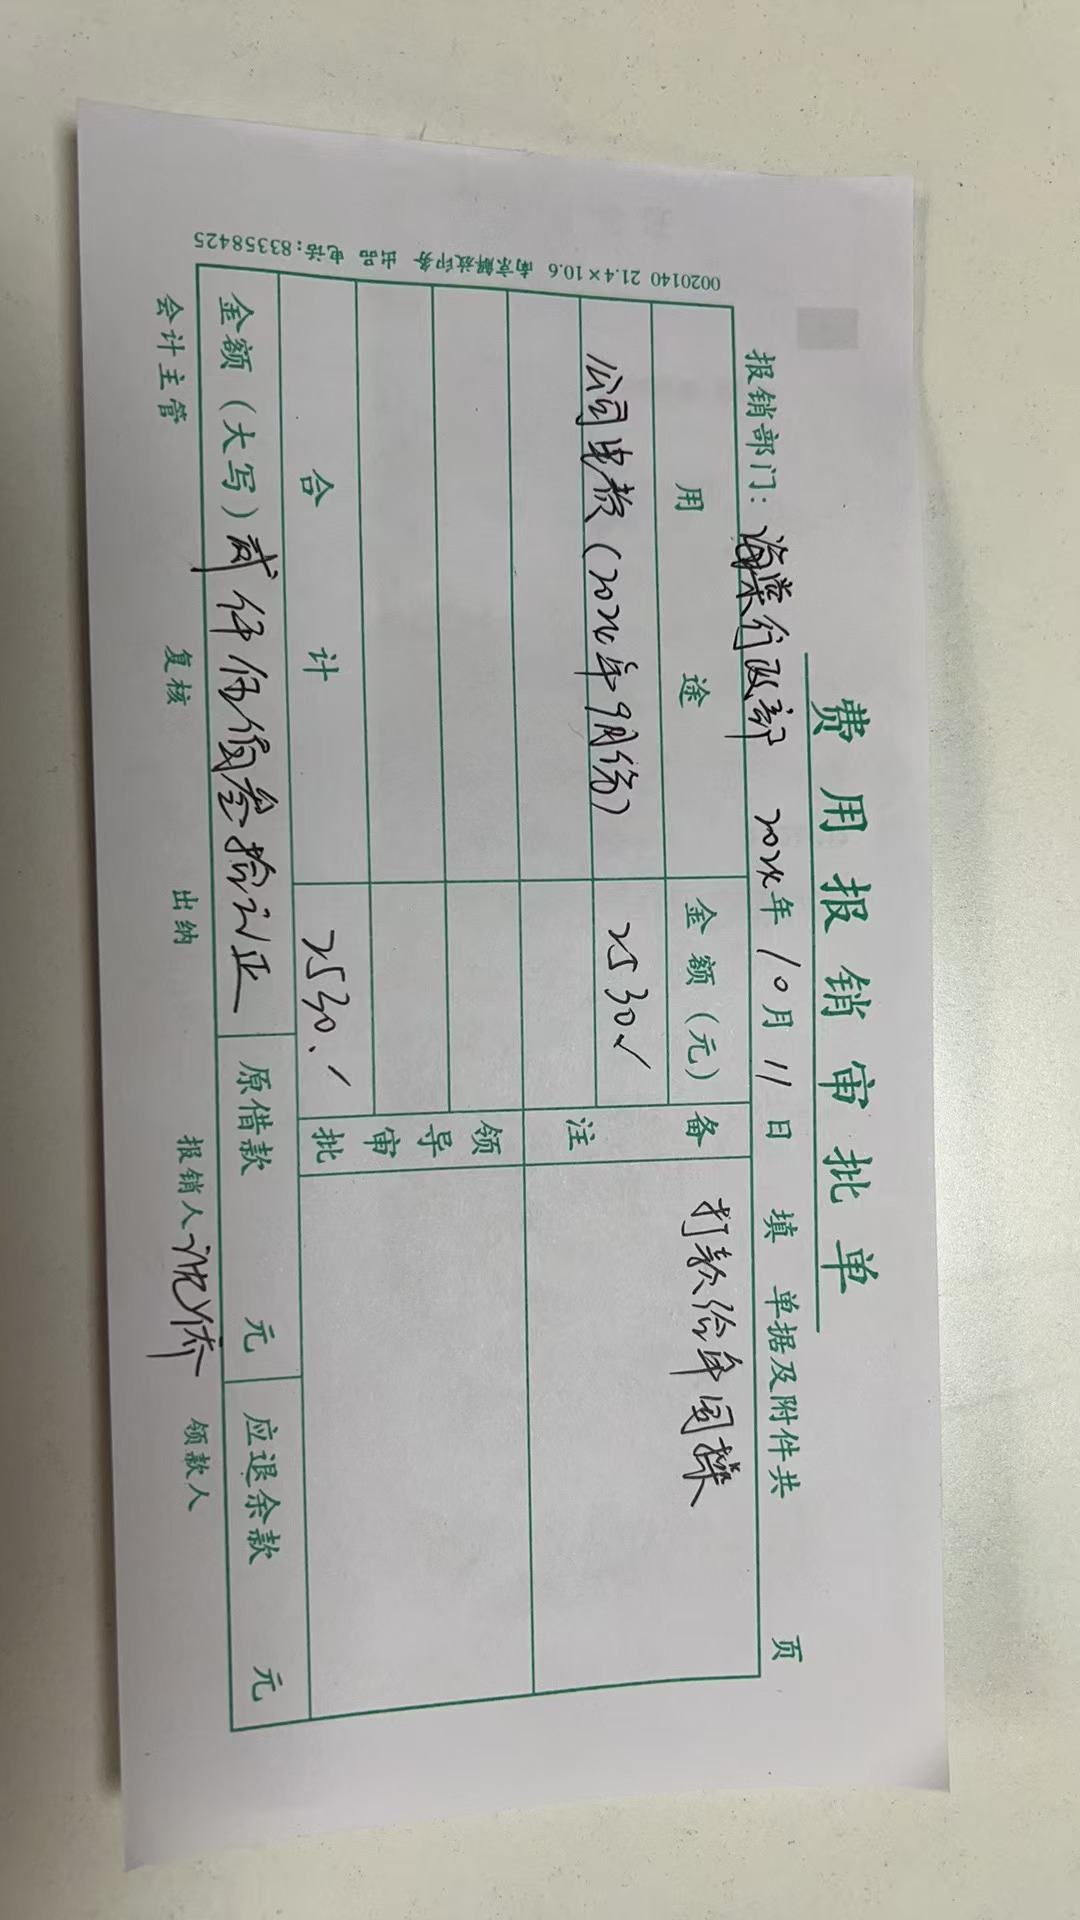 费用报销审批单
报销部门：海棠行政部 2024年10月11日 填 单据及附件共 页
用途 金额（元） 备注 打款给年国樑
公司电费（2024年9月份） 2530
领导审批
合计 2530.
金额（大写）贰仟伍佰叁拾元正 原借款 元 应退余款 元
会计主管 复核 出纳 报销人 领款人
0020140 21.4×10.6 南京解放印务 出品 电话：83358425